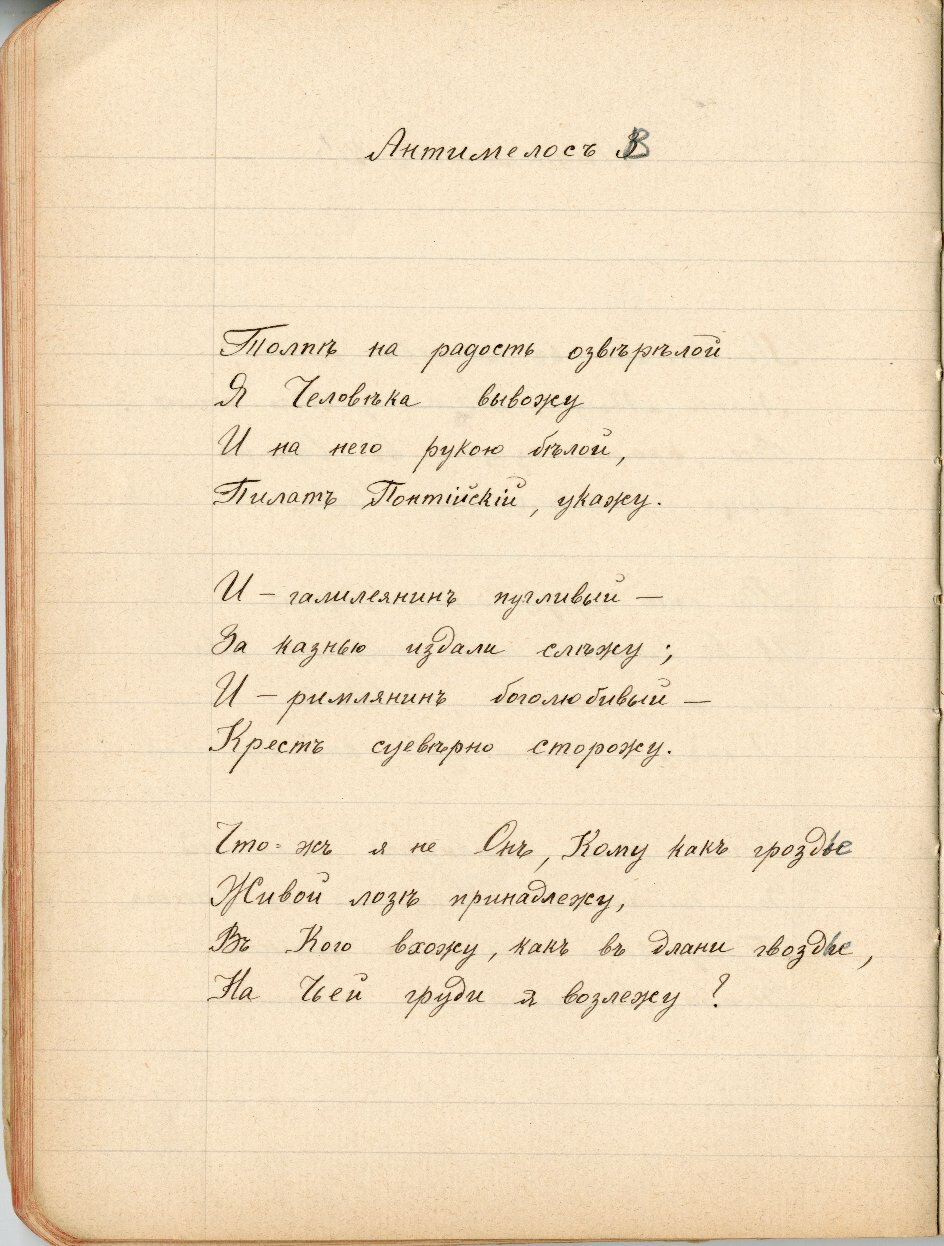 Антимелосъ В
Толпѣ на радость озвѣрѣлой
Я Человѣка вывожу
И на него рукою бѣлой,
Пилатъ Понтійскій, укажу.
И – галилеянинъ пугливый –
За казнью издали слѣжу;
И – римлянинъ боголюбивый –
Крестъ суевѣрно сторожу.
Что-жъ я не Онъ, Кому какъ гроздье
Живой лозѣ принадлежу,
Въ Кого вхожу, какъ въ длани гвоздье,
На Чьей груди я возлежу?